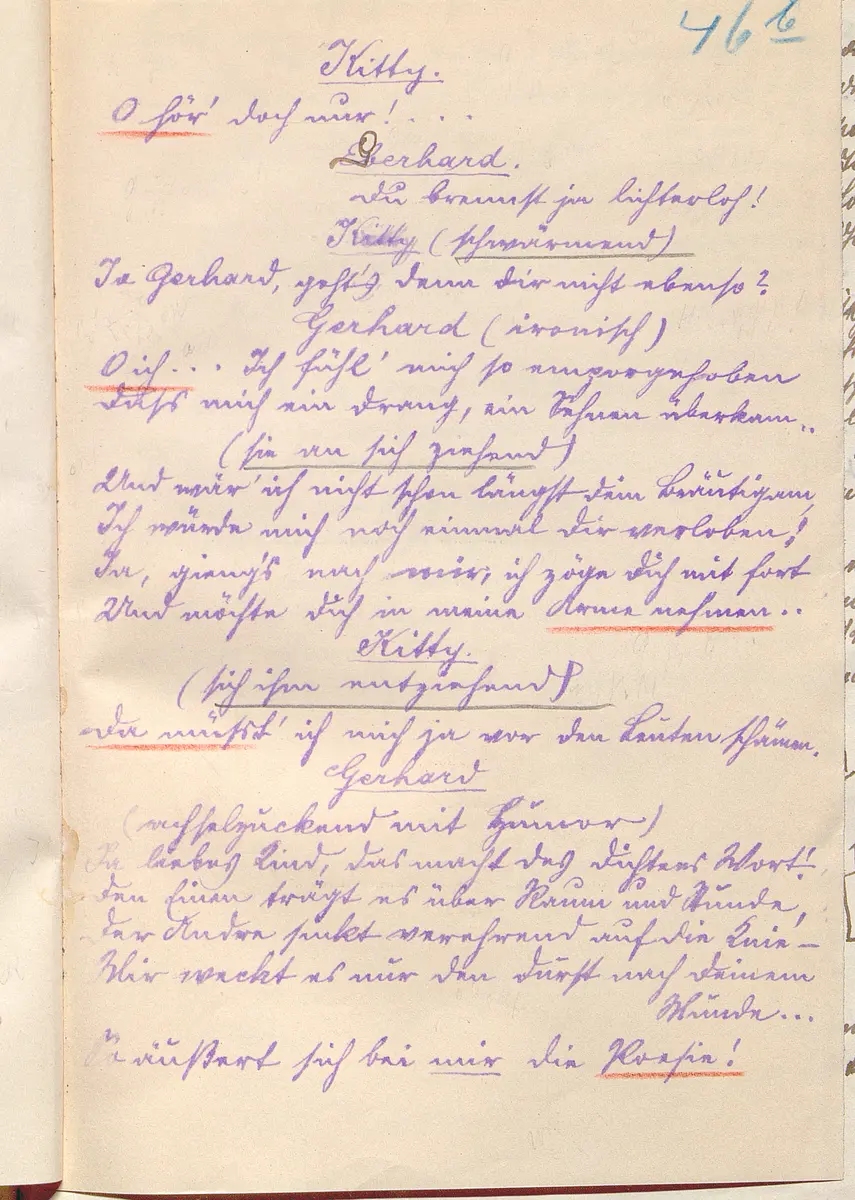 46b
Kitty.
O hör' doch nur! . . . .
Gerhard.
Du brennst ja lichterloh!
Kitty (schwärmend)
Ja Gerhard, geht's denn dir nicht ebenso?
Gerhard (ironisch)
O ich . . . Ich fühl' mich so emporgehoben
Dass mich ein Drang, ein Sehnen überkam..
(sie an sich ziehend)
Und wär' ich nicht schon längst dein Bräutigam,
Ich würde mich noch einmal dir verloben!
Ja, gieng's nach mir, ich zöge dich mit fort
Und möchte dich in meine Arme nehmen..
Kitty.
(sich ihm entziehend)
Da müsst' ich mich ja vor den Leuten schämen.
Gerhard
(achselzuckend mit Humor)
Ja liebes Kind, das macht des Dichters Wort!
Den Einen trägt es über Raum und Stunde,
Der Andre sinkt verehrend auf die Knie –
Mir weckt es nur den Durst nach deinem
Munde...
So äußert sich bei mir die Poesie!